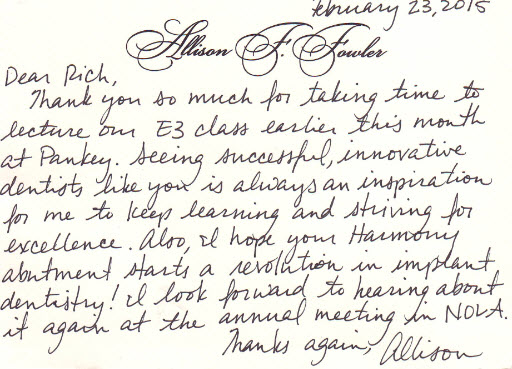 February 23, 2015
Allison F. Fowler
Dear Rich,
Thank you so much for taking time to
lecture our E3 class earlier this month
at Pankey. Seeing successful, innovative
dentists like you is always an inspiration
for me to keep learning and striving for
excellence. Also, I hope your Harmony
abutment starts a revolution in implant
dentistry! I look forward to hearing about
it again at the annual meeting in NOLA.
Thanks again, Allison